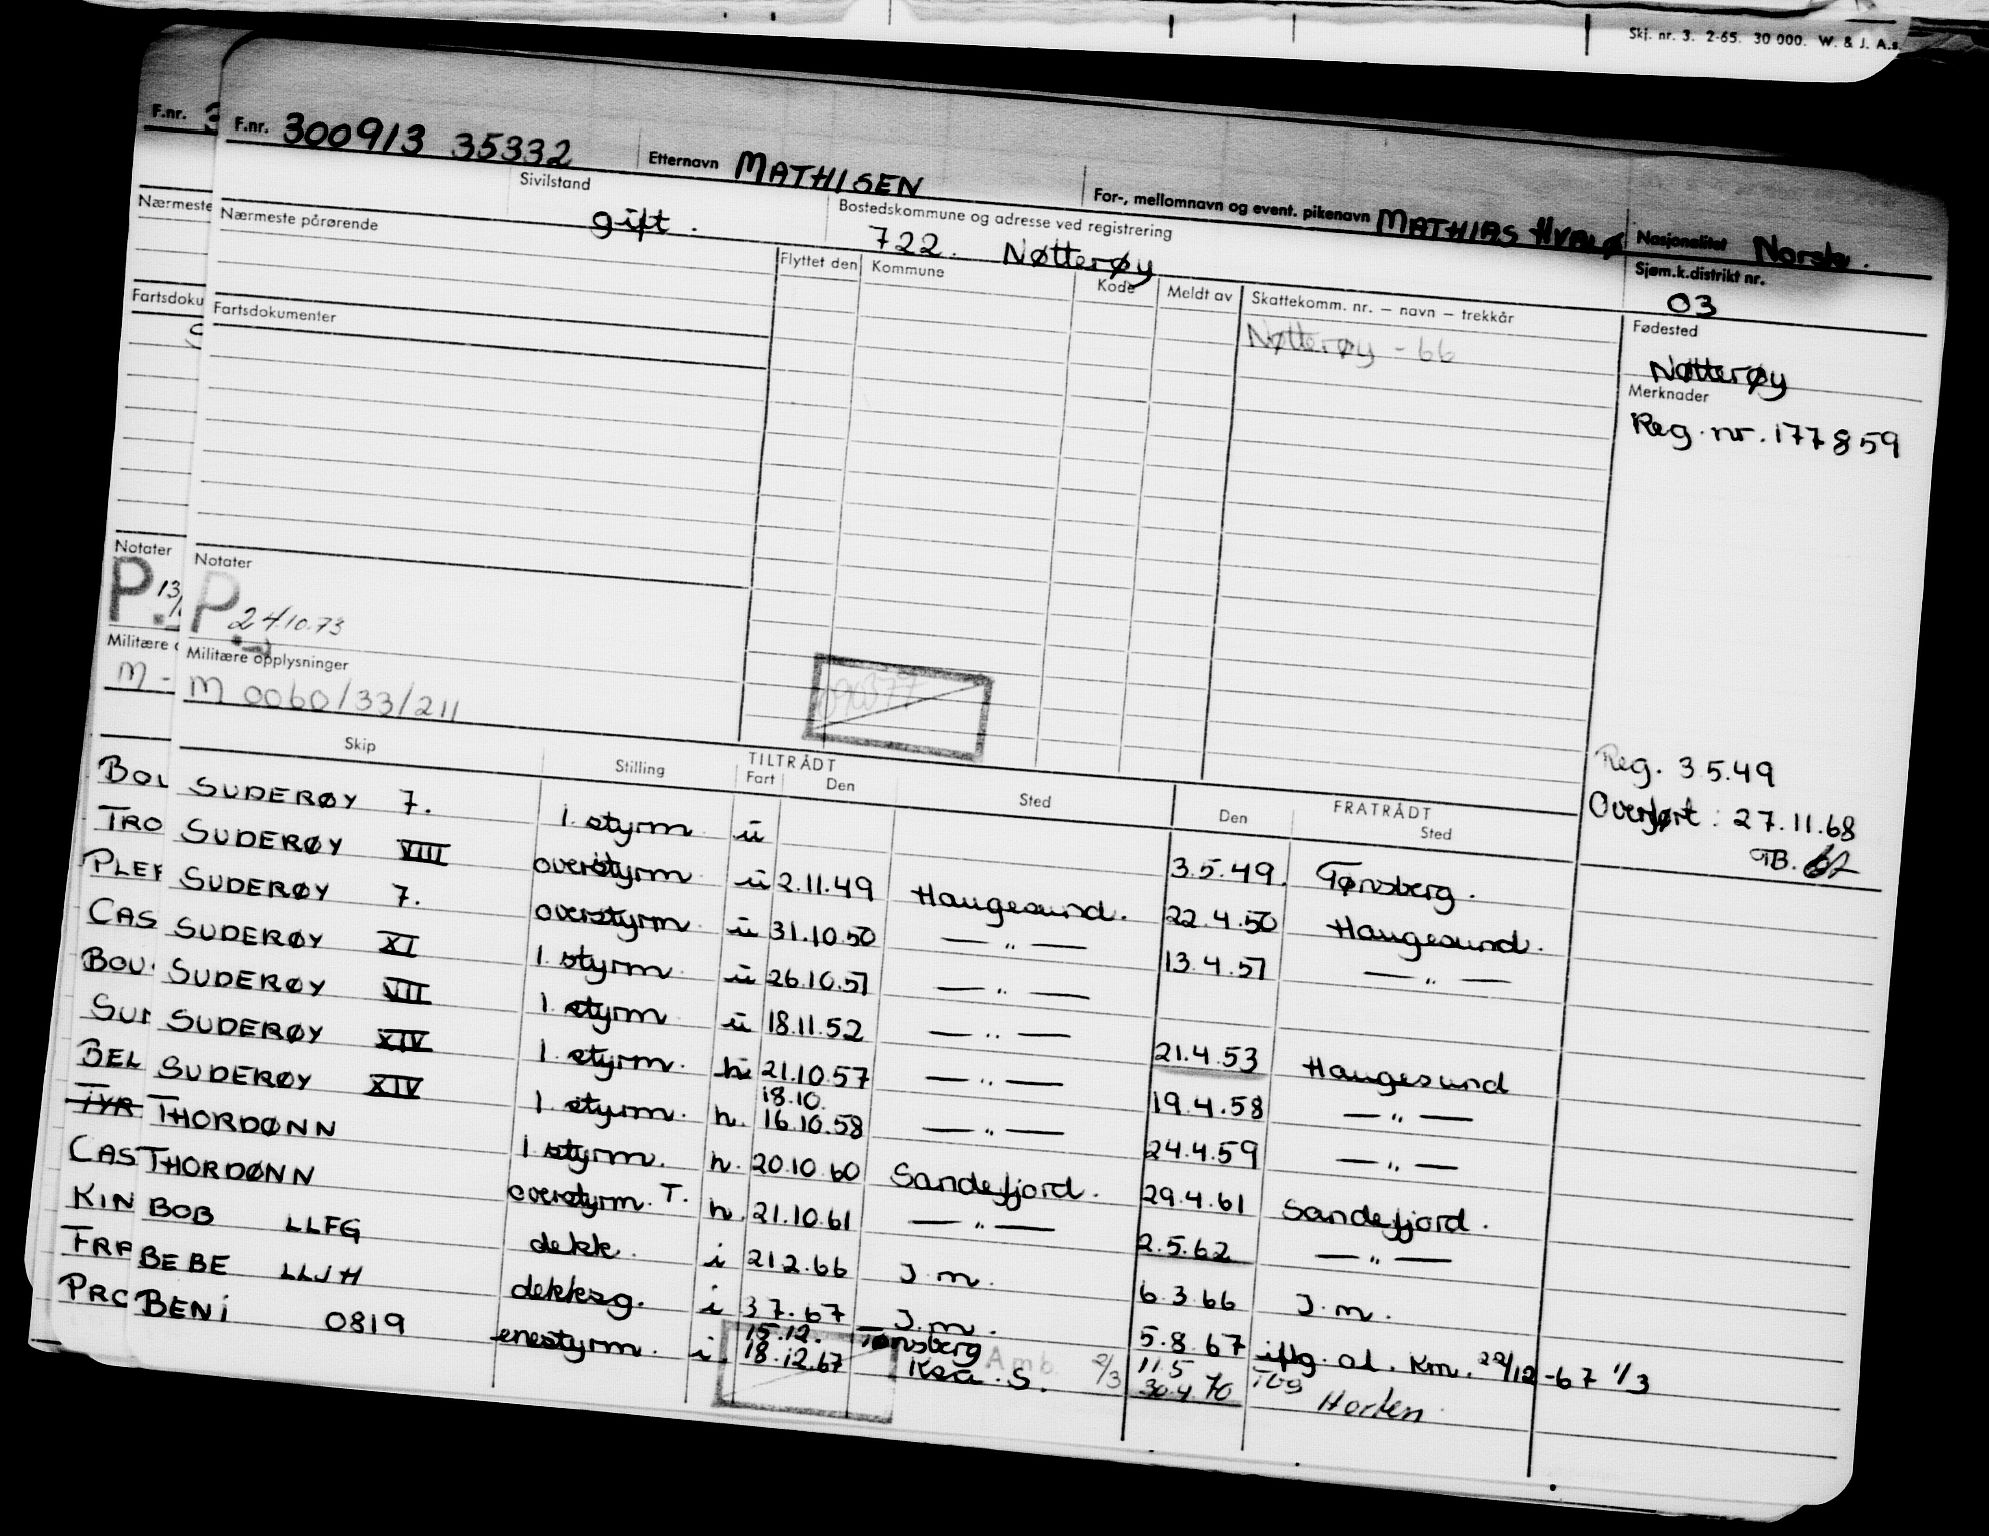 Skj. nr. 3. 2-65. 30 000. W. & J. A.s.
F.nr. 3
F.nr. 300913 35332 Etternavn MATHISEN For-, mellomnavn og event. pikenavn MATHIAS HVALØ Nasjonalitet Norsk.
Nærmeste
Nærmeste pårørende Sivilstand gift. Bostedskommune og adresse ved registrering 722. Nøtterøy Sjøm.k.distrikt nr. 03
Flyttet den Kommune Kode Meldt av Skattekomm. nr. — navn — trekkår Fødested
Nøtterøy - 66 Nøtterøy
Fartsdoku
Fartsdokumenter
Merknader
Reg. nr. 177859
Notater
Notater
P. 13
P. 24.10.73
Militære o
Militære opplysninger
M -
M 0060/33/211
090377
Reg. 3.5.49
Overført: 27.11.68
TB.
Skip Stilling TILTRÅDT FRATRÅDT
Fart Den Sted Den Sted
BOU
SUDERØY 7. 1. styrm. ü 3.5.49. Tønsberg.
TRO
SUDERØY VIII overstyrm ü 2.11.49 Haugesund. 22.4.50 Haugesund.
PLEF
SUDERØY 7. overstyrm ü 31.10.50 — " — 13.4.51 — " —
CAS
SUDERØY XI 1. styrm ü 26.10.51 — " —
BOU
SUDERØY VII 1. styrm ü 18.11.52 — " — 21.4.53 Haugesund
SUD
SUDERØY XIV 1. styrm. h 21.10.57 — " — 19.4.58 — " —
BEL
SUDERØY XIV 1. styrm. h. 18.10. 16.10.58 — " — 24.4.59 — " —
TYR
THORDØNN 1. styrm. h. 20.10.60 Sandefjord. 29.4.61 Sandefjord.
CAS
THORDØNN overstyrm. T. h. 21.10.61 — " — 2.5.62 — " —
KIN
BOB LLFG dekk. i 21.2.66 J.m. 6.3.66 J.m.
FRA
BEBE LLJH dekksg. i 3.7.67 J.m. 5.8.67 iflg. ol. Km. 22/12-67 1/3
PRO
BENI 0819 enestyrm. i. 15.12. Tønsberg 11.5 Tbg
18.12.67 Kea. S. Amb. 2/3 30.4.70 Horten